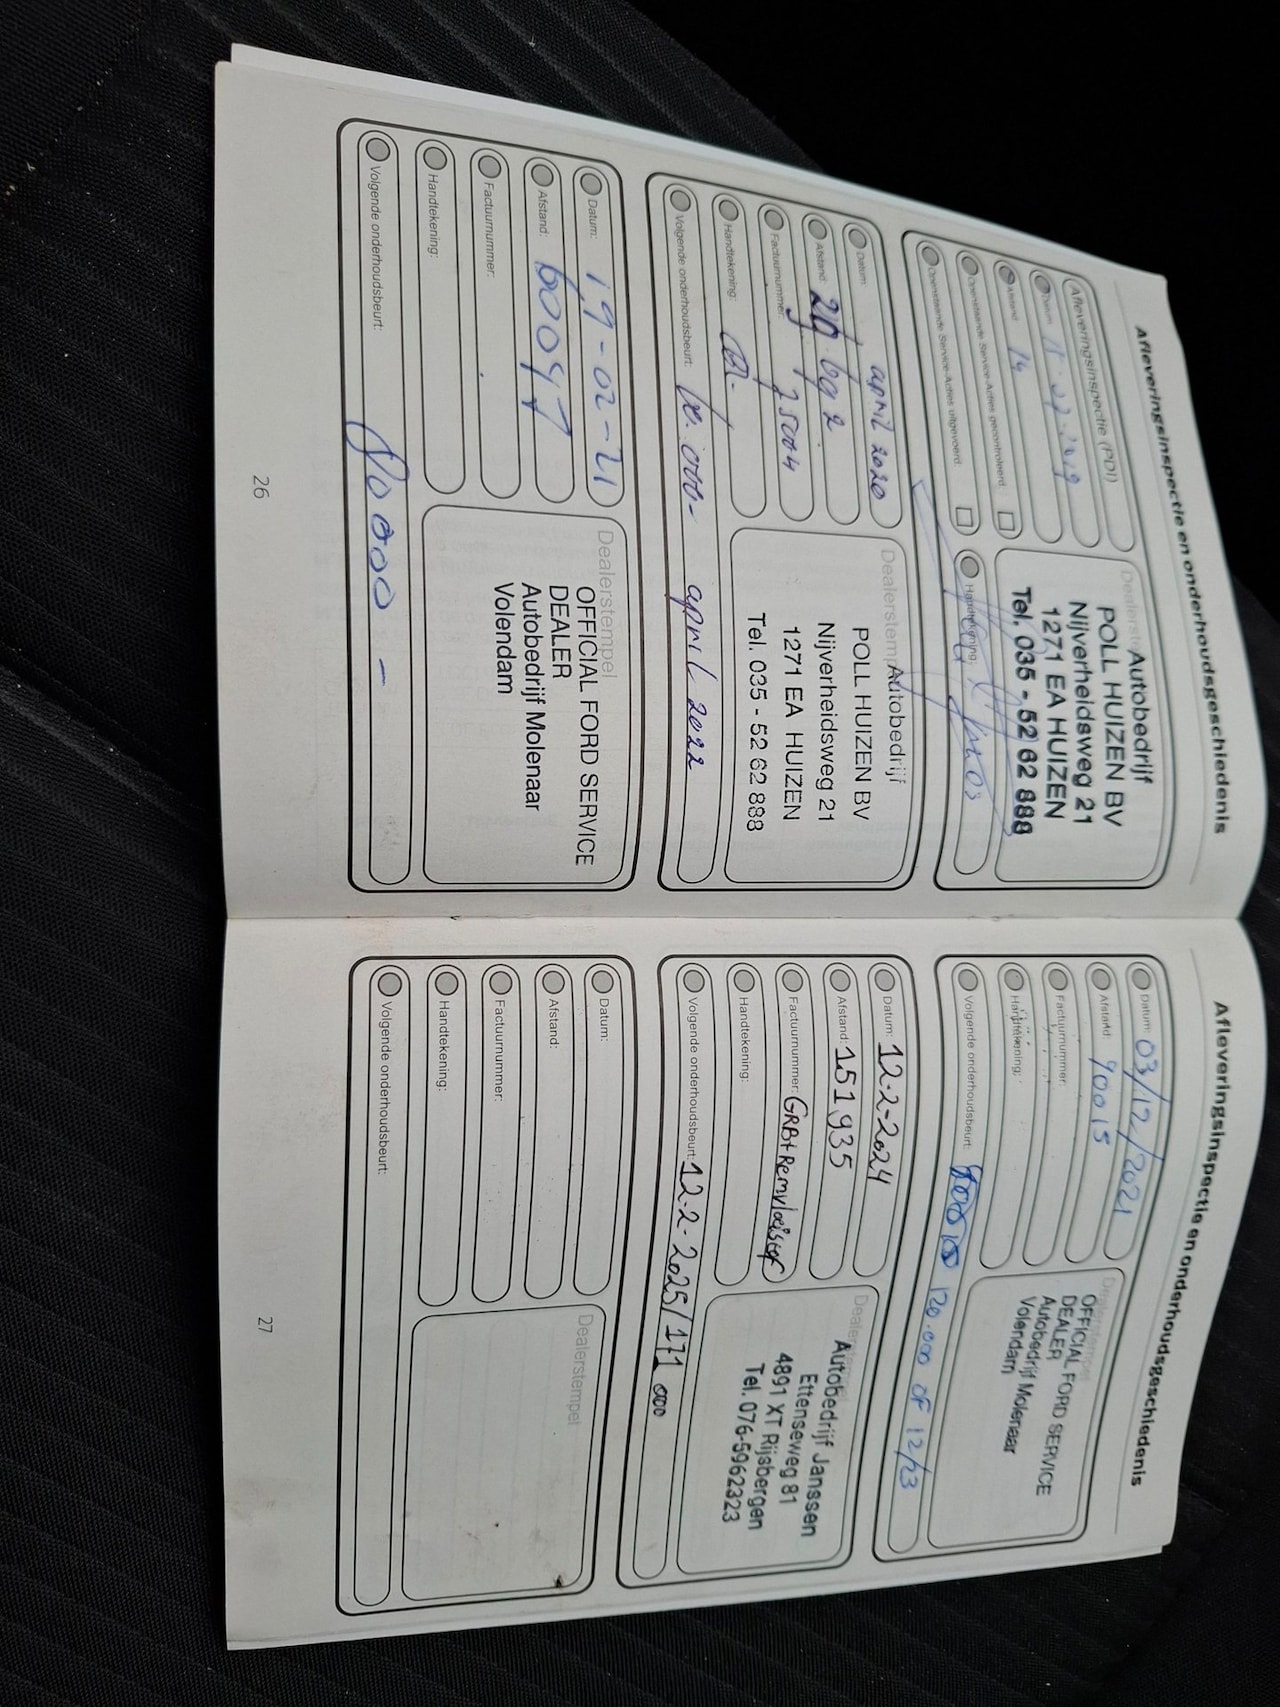 Afleveringsinspectie en onderhoudsgeschiedenis
Afleveringsinspectie (PDI)
Datum:
Afstand: 14
Openstaande Service-Acties gecontroleerd:
Openstaande Service-Acties uitgevoerd:
Handtekening:
Autobedrijf
POLL HUIZEN BV
Nijverheidsweg 21
1271 EA HUIZEN
Tel. 035 - 52 62 888
Datum: april 2020
Afstand:
Factuurnummer:
Handtekening:
Volgende onderhoudsbeurt: april 2022
Dealerstempel
Autobedrijf
POLL HUIZEN BV
Nijverheidsweg 21
1271 EA HUIZEN
Tel. 035 - 52 62 888
Datum: 19-02-21
Afstand: 60047
Factuurnummer:
Handtekening:
Volgende onderhoudsbeurt:
Dealerstempel
OFFICIAL FORD SERVICE
DEALER
Autobedrijf Molenaar
Volendam
26
Afleveringsinspectie en onderhoudsgeschiedenis
Datum: 03/12/2021
Afstand: 90015
Factuurnummer:
Handtekening:
Volgende onderhoudsbeurt: 120.000 OF 12/23
Dealerstempel
OFFICIAL FORD SERVICE
DEALER
Autobedrijf Molenaar
Volendam
Datum: 12-2-2024
Afstand: 151935
Factuurnummer: GRB+Remvloeistof
Handtekening:
Volgende onderhoudsbeurt: 12-2-2025/171 000
Autobedrijf Janssen
Ettenseweg 81
4891 XT Rijsbergen
Tel. 076-5962323
Datum:
Afstand:
Factuurnummer:
Handtekening:
Volgende onderhoudsbeurt:
Dealerstempel
27